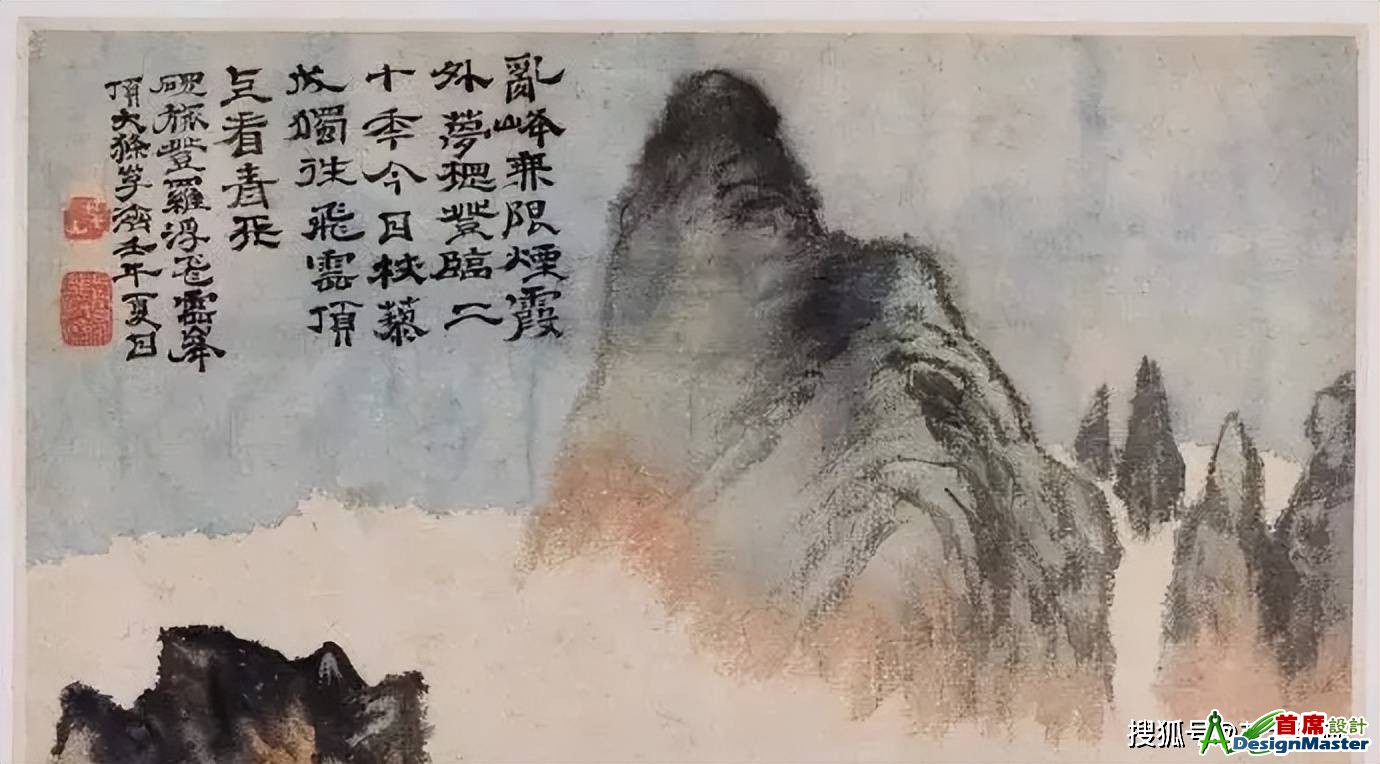 亂峰無限煙霞
外夢想登臨二
十年今日杖藜
成獨往飛雲頂
上看青天
硯旅登羅浮飛雲峰
頂大滌子濟壬午夏日
搜狐号@
首席設計
DesignMaster